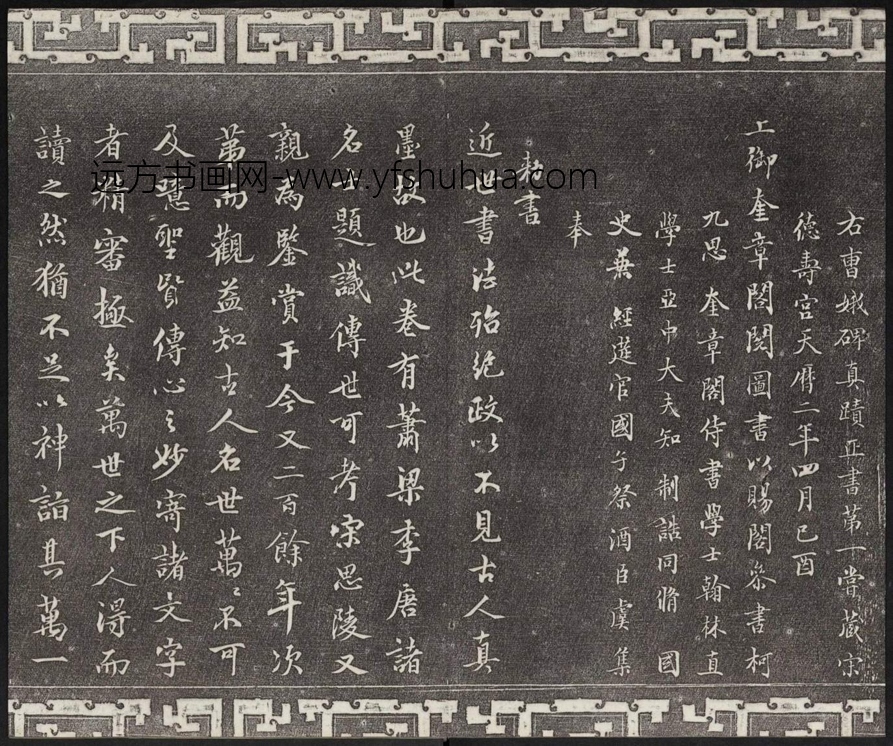 右曹娥碑真蹟正書第一嘗藏宋
德壽宮天曆二年四月己酉
上御奎章閣閱圖書以賜閣參書柯
九思奎章閣侍書學士翰林直
學士亞中大夫知 制誥同脩 國
史兼 經筵官國子祭酒臣虞集
奉
勅書
近世書法殆絕政以不見古人真
墨故也此卷有蕭梁李唐諸
名人題識傳世可考宋思陵又
親為鑒賞于今又二百餘年次
第而觀益知古人名世萬〻不可
及噫聖賢傳心之妙寄諸文字
者精審極矣萬世之下人得而
讀之然猶不足以神詣其萬一
远方书画网-www.yfshuhua.com